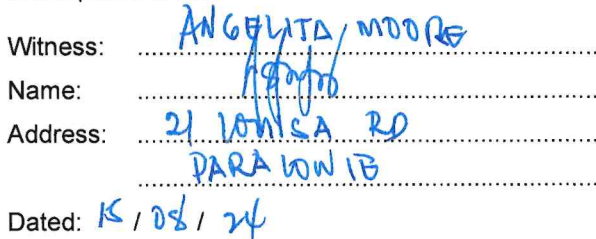 Witness: ANGELITA MOORE
Name:
Address: 21 LOUISA RD
PARALOWIE
Dated: 15 / 08 / 24